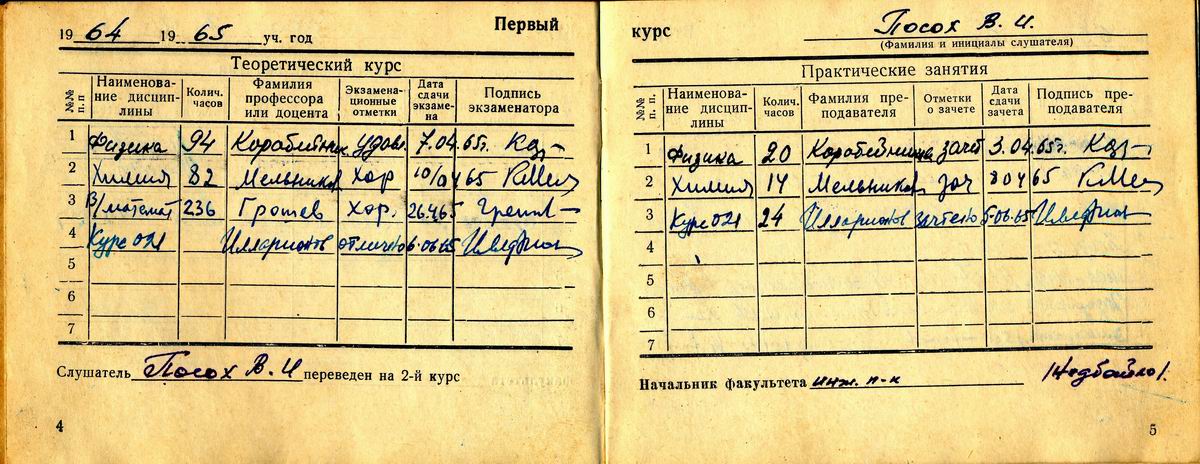 1964 1965 уч. год
Первый
Теоретический курс
№№ п. п
Наименова-
ние дисцип-
лины
Колич.
часов
Фамилия
профессора
или доцента
Экзамена-
ционные
отметки
Дата
сдачи
экзаме-
на
Подпись
экзаменатора
1 Физика 94 удовл 7.04.65г.
2 Химия 82 Мельников Хор 10/04 65
3 В/математ 236 Грошев Хор. 26.4.65
4 Курс 021 Илларионов отлично 6.06.65
5
6
7
Слушатель Посох В.И переведен на 2-й курс
4
курс
Посох В.И.
(Фамилия и инициалы слушателя)
Практические занятия
№№ п. п.
Наименова-
ние дисцип-
лины
Колич.
часов
Фамилия пре-
подавателя
Отметки
о зачете
Дата
сдачи
зачета
Подпись пре-
подавателя
1 Физика 20 зачет 3.04.65г.
2 Химия 14 Мельников зач 8 04 65
3 Курс 021 24 Илларионов зачтено 5-06.65
4
5
6
7
Начальник факультета инж. п-к /Недбайло/.
5